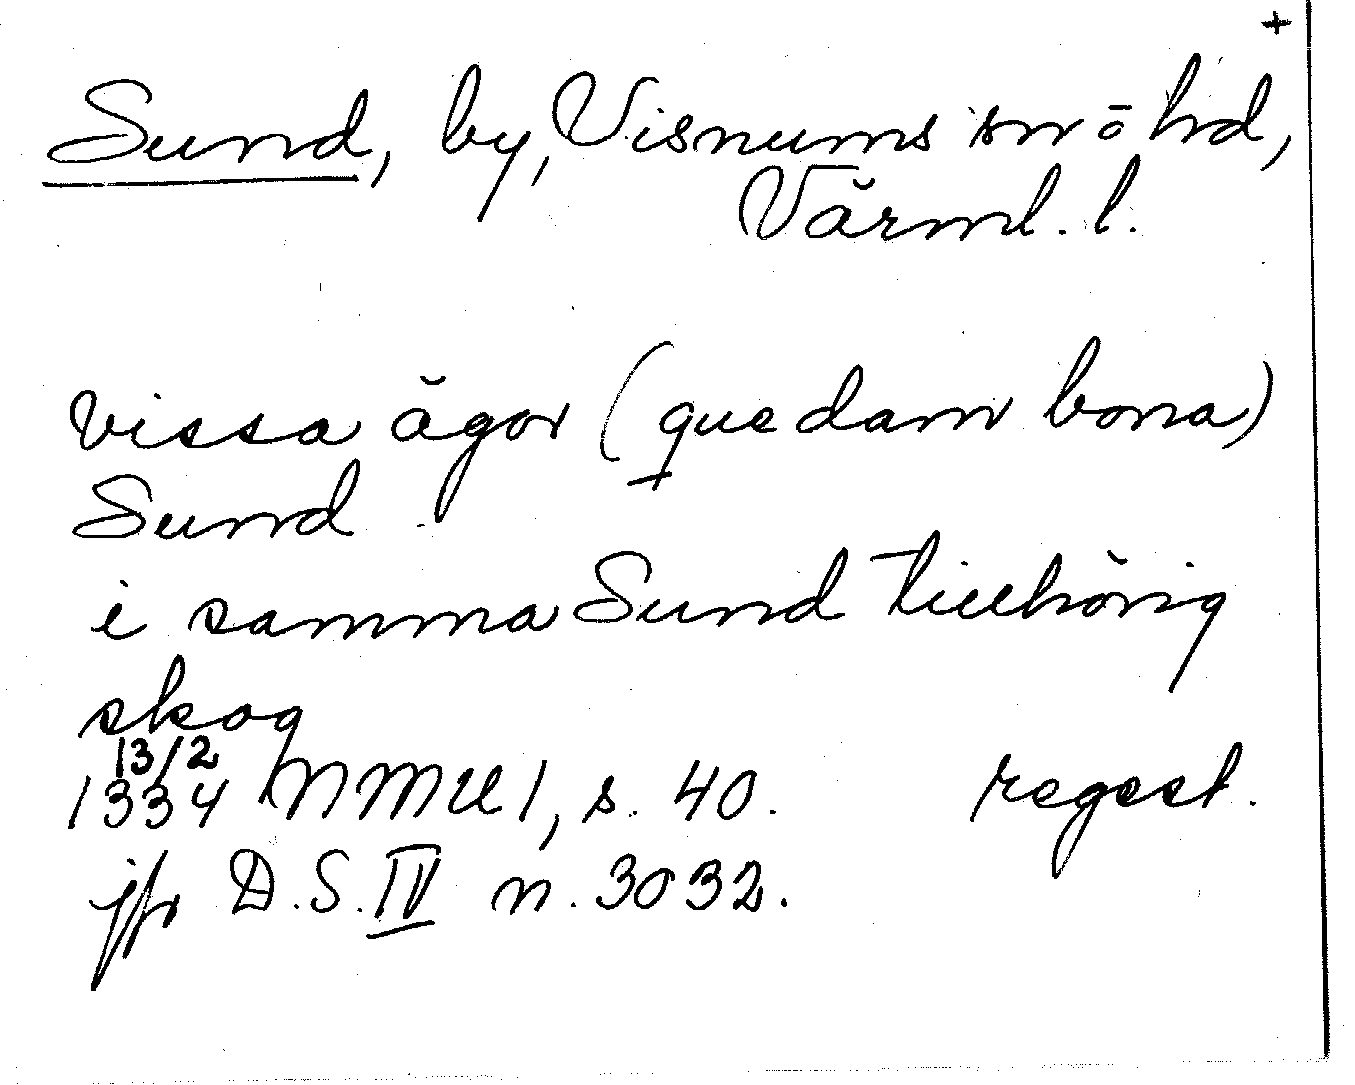 +
Sund, by, Visnums sn o hd,
Värml. l.
vissa ägor (quedam bona)
Sund
i samma Sund tillhörig
skog
13/2
1334 NMU 1, s. 40. regest.
jfr D.S. IV n. 3032.